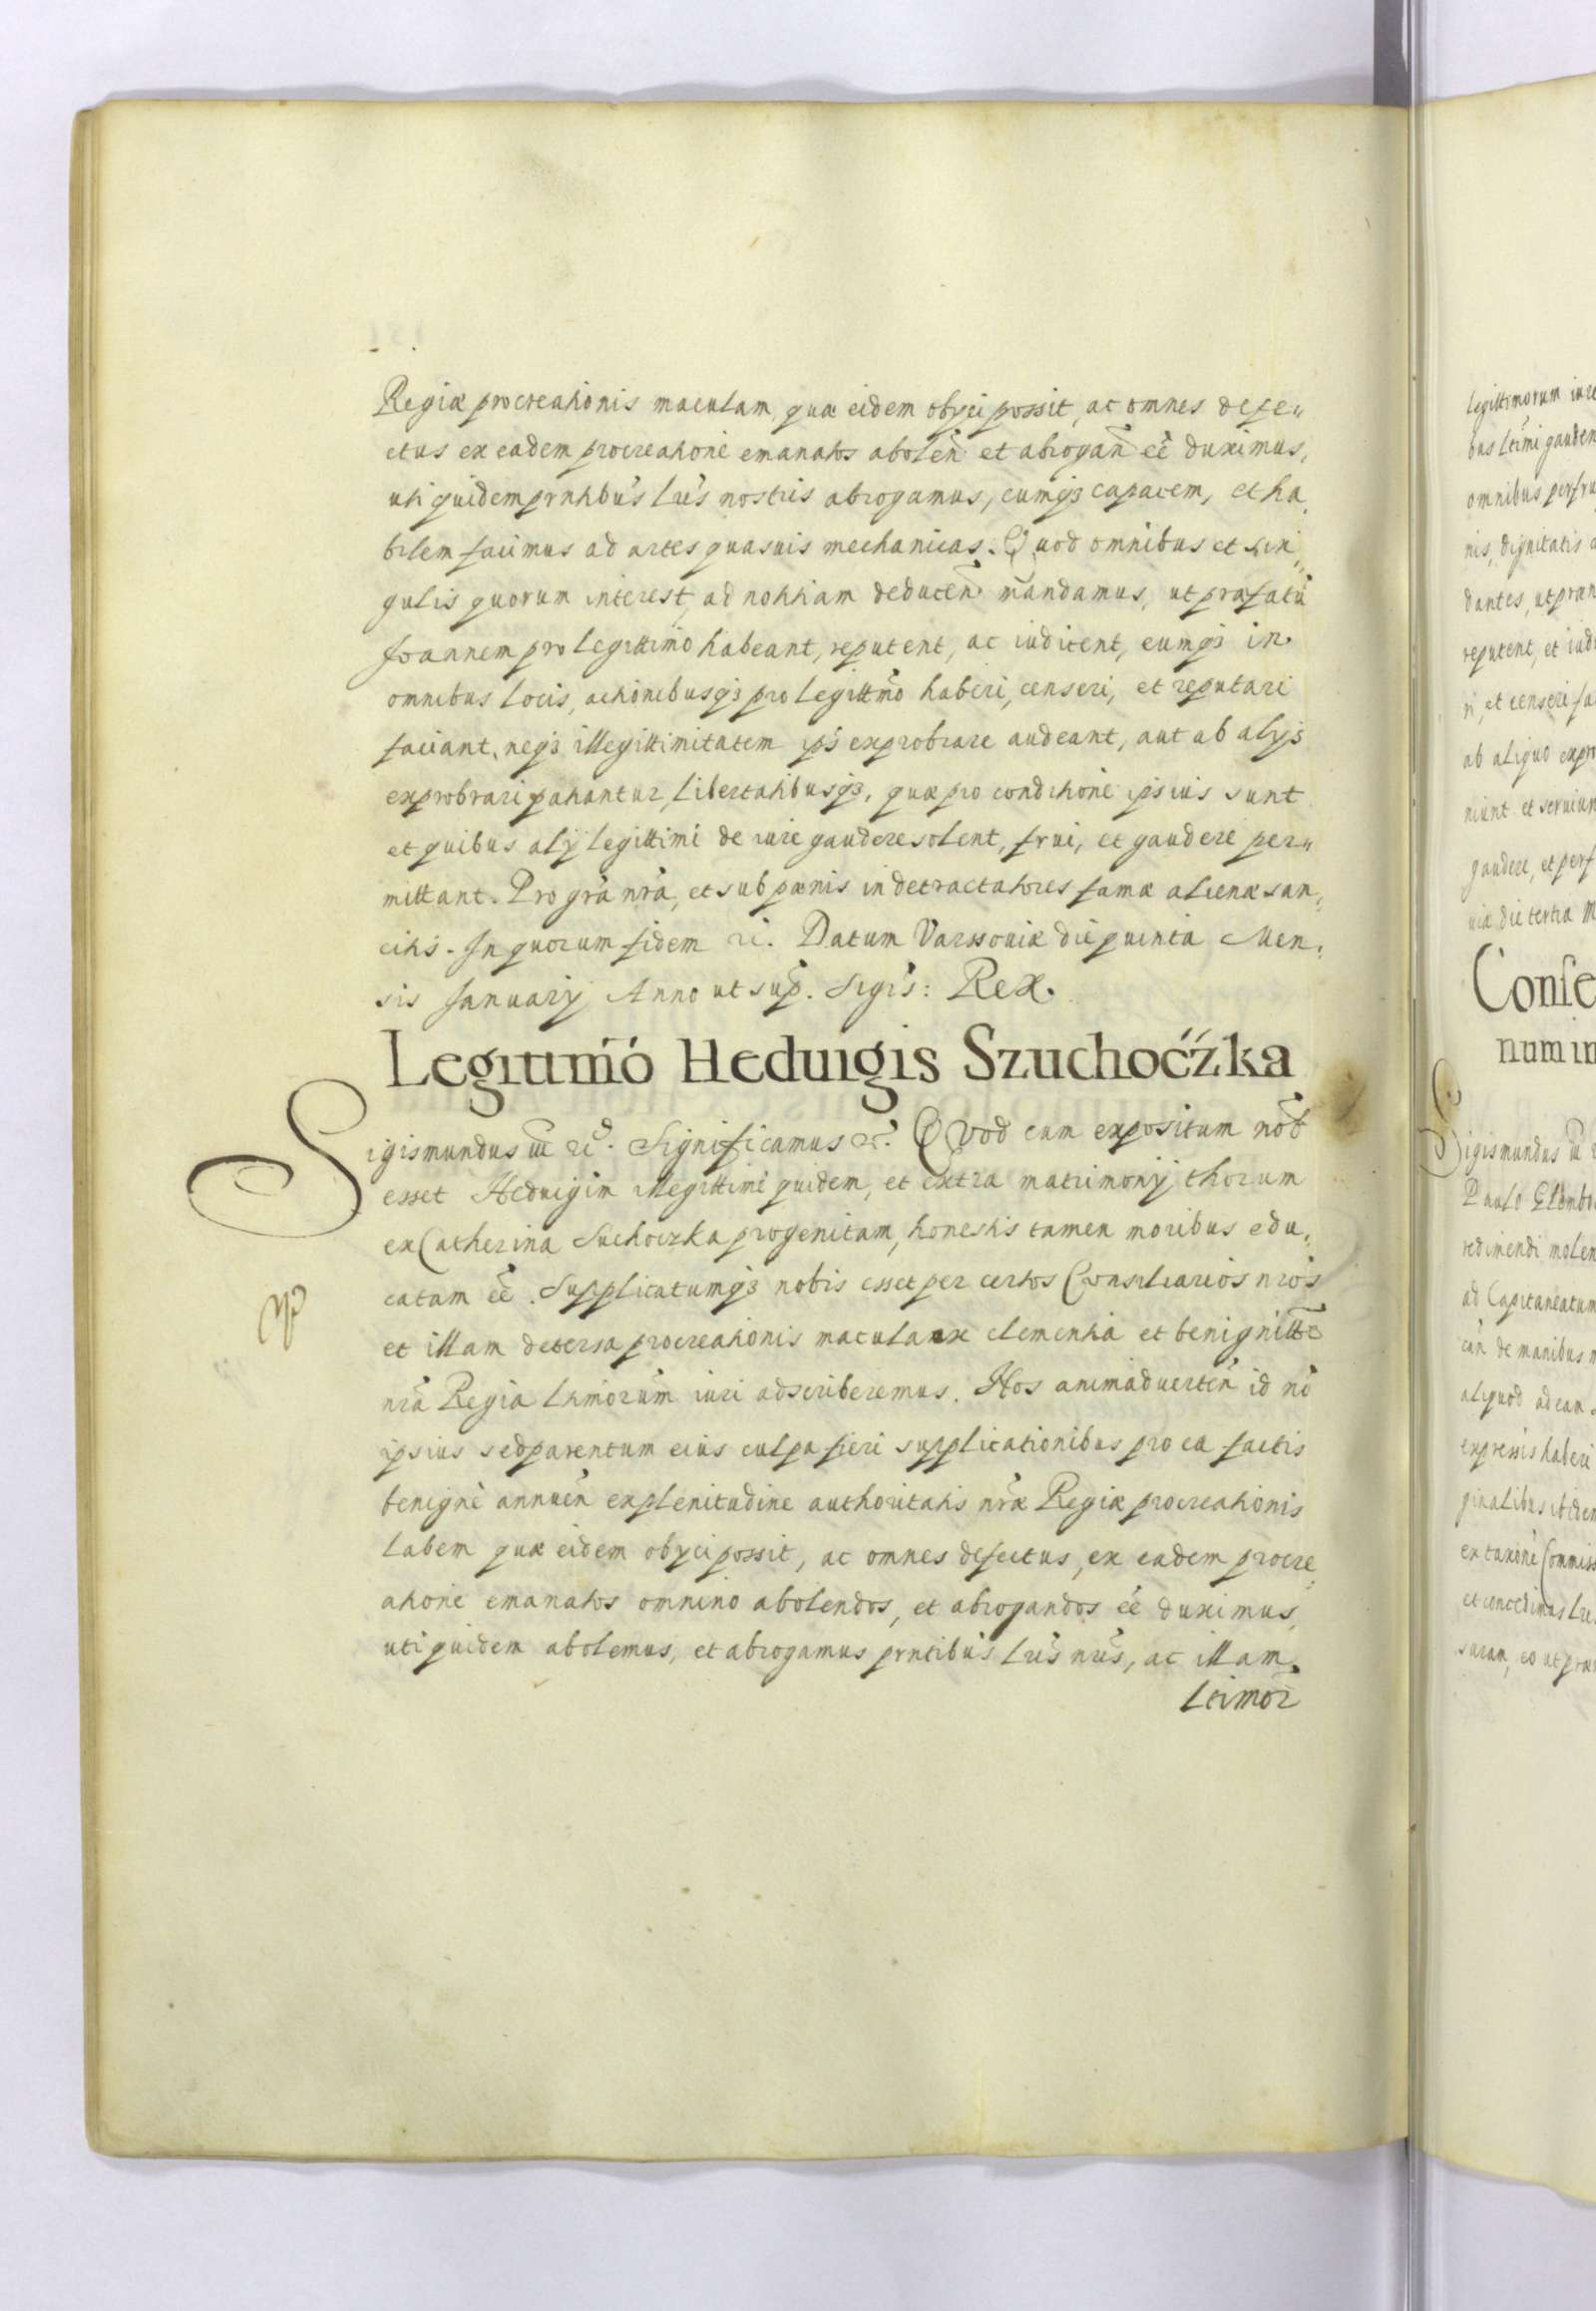 Regiæ procreationis maculam, quæ eidem obyci possit, ac omnes defe„
ctus ex eadem procreatione emanatos abolen̄ et abrogan̄ eē duximus,
uti quidem prntibus Lrīs nostris abrogamus, eumqȝ capacem, et ha„
bilem facimus ad artes quasuis mechanicas. Quod omnibus et sin„
gulis quorum interest, ad notitiam deducen̄ mandamus, ut præfatū
Joannem pro legittimo habeant, reputent, ac iudicent, eumqȝ in
omnibus locis, actionibusqȝ pro legittm̄o haberi, censeri, et reputari
faciant, neqȝ illegittimitatem ip̄s exprobrare audeant, aut ab alyȝ
exprobrari patiantur, Libertatibusqȝ, quæ pro conditione ipsius sunt
et quibus alij legittimi de iure gaudere solent, frui, et gaudere per„
mittant. Pro grā nrā, et sub pœnis in detractatores famæ alienæ san„
citis. In quorum fidem ꝛc. Datum Varssouiæ die quinta Men„
sis January Anno ut sup̄. Sigis: Rex.
Legittim̄o Heduigis Szuchoćźka
Sigismundus III ꝛc. Significamus ꝛc. QVod cum expositum nob̄
esset Heduigim illegittimi quidem, et extra matrimonij thorum
ex Catherina Suchoczka progenitam, honestis tamen moribus edu„
catam eē. Supplicatumqȝ nobis esset per certos Consiliarios nrōs
et illam detersa procreationis macula ex clementia et benignitte
nrā Regia Ltimorūm iuri adscriberemus. Nos animaduerten̄ id nō
ipsius sed parentum eius culpa fieri supplicationibus pro ea factis
benignè annuen̄ ex plenitudine authoritatis nrǣ Regiæ procreationis
Labem quæ eidem obyci possit, ac omnes defectus, ex eadem procre„
atione emanatos omnino abolendos, et abrogandos eē duximus,
uti quidem abolemus, et abrogamus prntibus Lrīs nrīs, ac illam
Ltimor̄
legittimorum iure
bus Ltimi gauden
omnibus perfru
nis, dignitatis
dantes, ut præn
reputent, et iudi
ri, et censeri fa
ab aliquo expr
niunt et seruiun
gaudere, et perf
uiæ die tertia M
Conse
num in
Sigismundus III
Paulo
redimendi molen
ad Capitaneatum
can̄ de manibus
aliquod ad eam
expressis haberi
ginalibus ibidem
Commiss
et concedimus Lrē
suram, eo ut præ